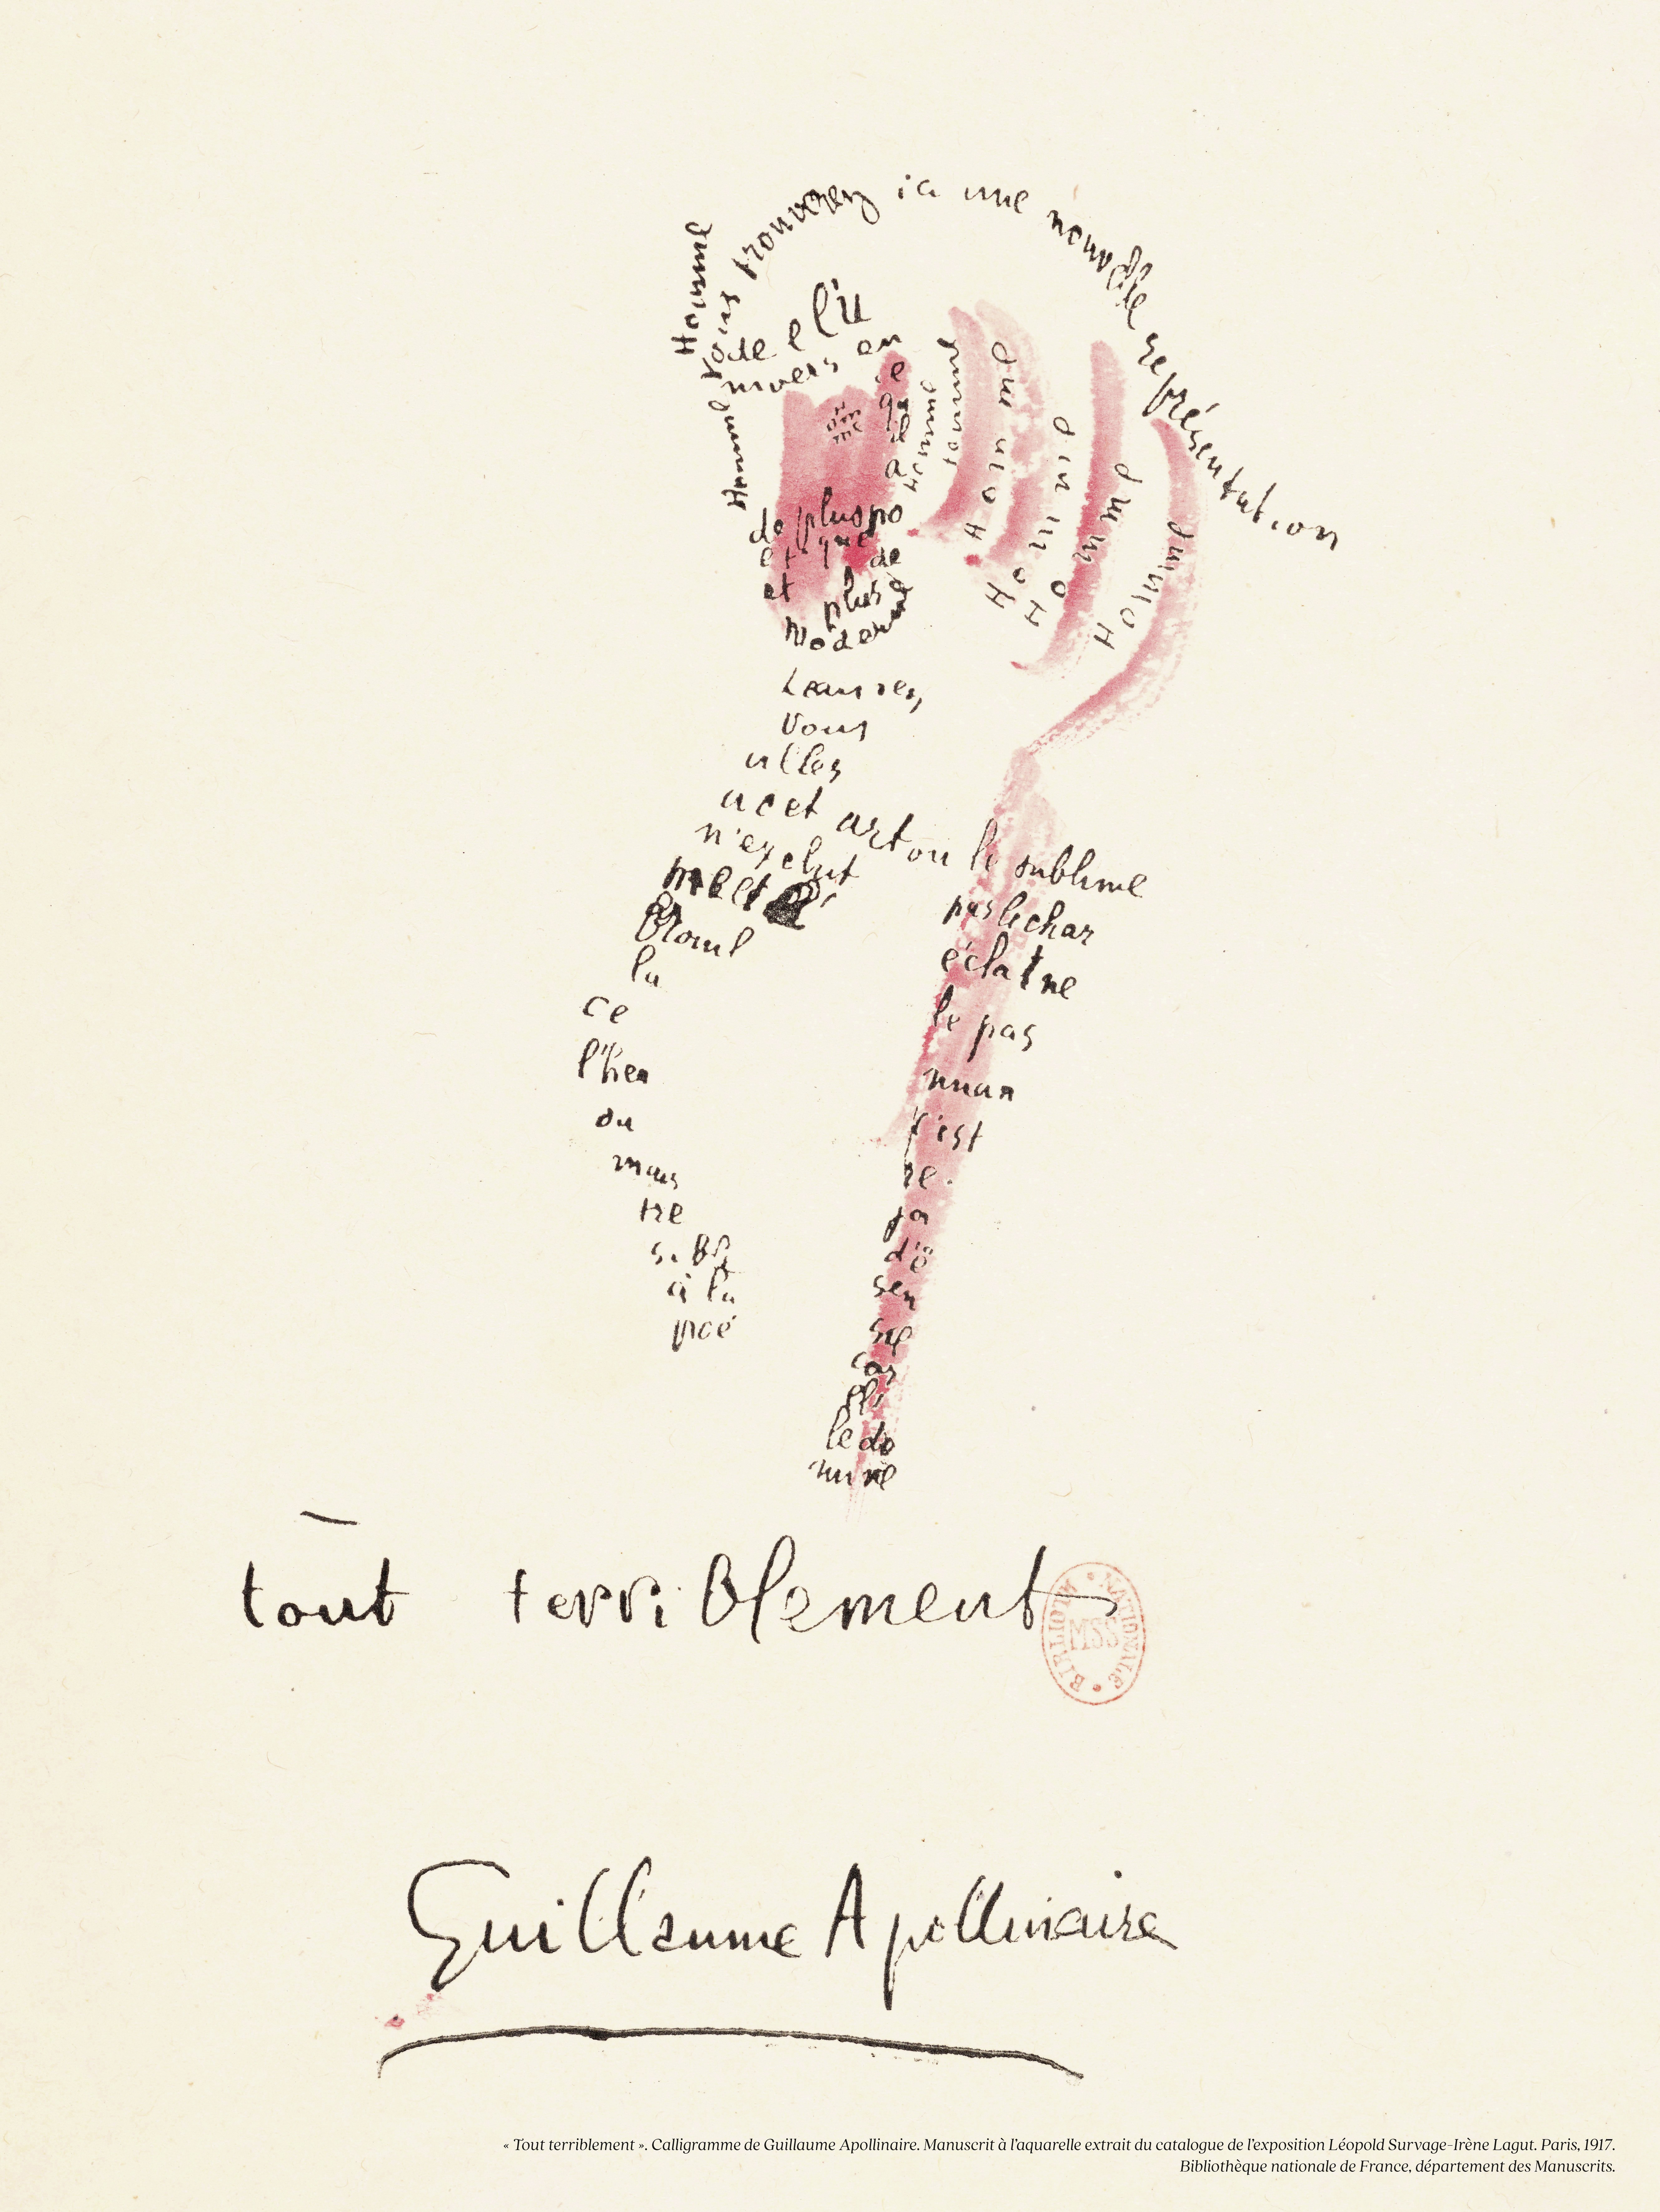 Homme
Vous trouverez ici une nouvelle représentation
de l'u
nivers en
ce
qu'il
a
de plus po
étique
et de
plus
moderne
Homme
Homme
Homme
Homme
Homme
Homme
Homme
Laissez
vous
aller
a cet art ou le sublime
n'exclut pas le char
me et l'é éclat ne
brouil le pas
la nuan
ce c'est
l'heu re
ou ja
mais d'ê
tre sen
sible
à la
poé sie
car
elle
le do
mine
tout terriblement
BIBLIOTH NATIONALE
MSS
Guillaume Apollinaire
« Tout terriblement ». Calligramme de Guillaume Apollinaire. Manuscrit à l'aquarelle extrait du catalogue de l'exposition Léopold Survage-Irène Lagut. Paris, 1917.
Bibliothèque nationale de France, département des Manuscrits.